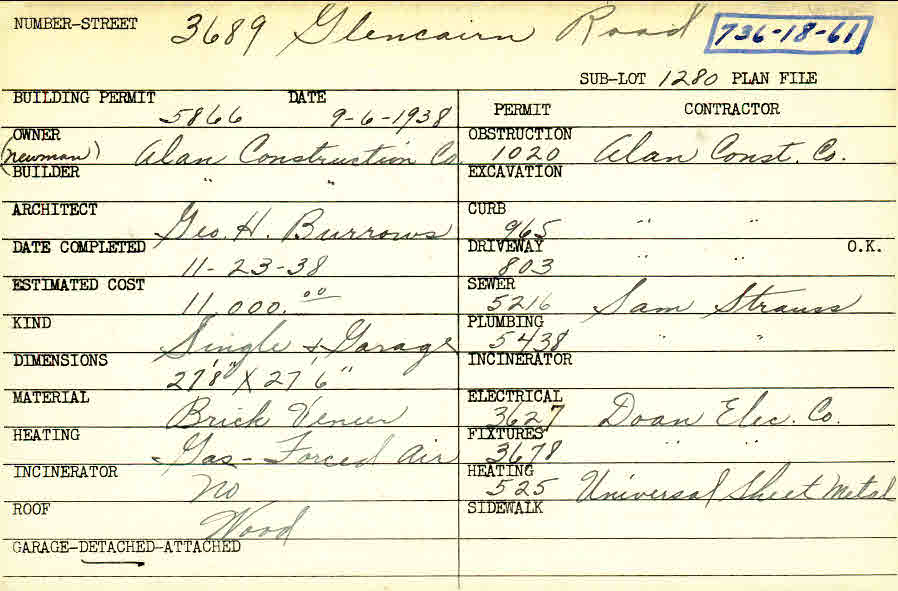 NUMBER-STREET 3689 Glencairn Road 736-18-61
SUB-LOT 1280 PLAN FILE
BUILDING PERMIT 5866 DATE 9-6-1938
PERMIT CONTRACTOR
OWNER (Newman) Alan Construction Co.
OBSTRUCTION 1020 Alan Const. Co.
BUILDER " "
EXCAVATION
ARCHITECT Geo. H. Burrows
CURB 965 " "
DATE COMPLETED 11-23-38
DRIVEWAY 803 " " O.K.
ESTIMATED COST 11,000.00
SEWER 5216 Sam Strauss
KIND Single & Garage
PLUMBING 5438 " "
DIMENSIONS 27'8" X 27'6"
INCINERATOR
MATERIAL Brick Veneer
ELECTRICAL 3627 Doan Elec. Co.
HEATING Gas-Forced Air
FIXTURES 3678 " "
INCINERATOR no
HEATING 525 Universal Sheet Metal
ROOF Wood
SIDEWALK
GARAGE-DETACHED-ATTACHED